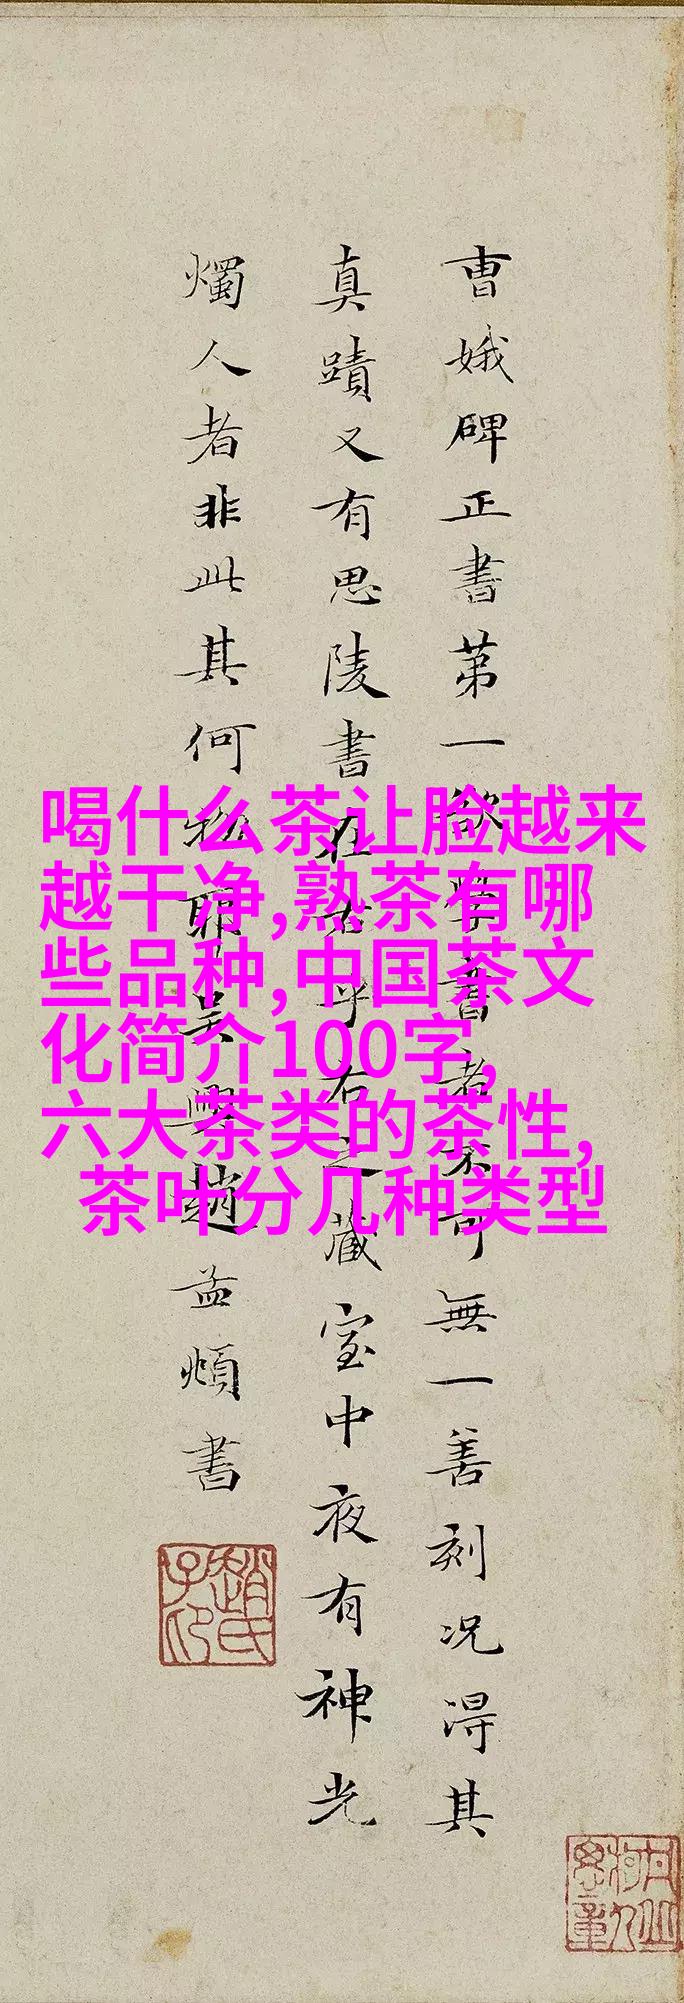 曹娥碑正書第一欲學書者不可無一善刻况得其
真蹟又有思陵書在右乎右之藏室中夜有神光
燭人者非此其何物耶吳興趙孟頫書
喝什么茶让脸越来
越干净,熟茶有哪
些品种,中国茶文
化简介100字,
六大茶类的茶性,
茶叶分几种类型